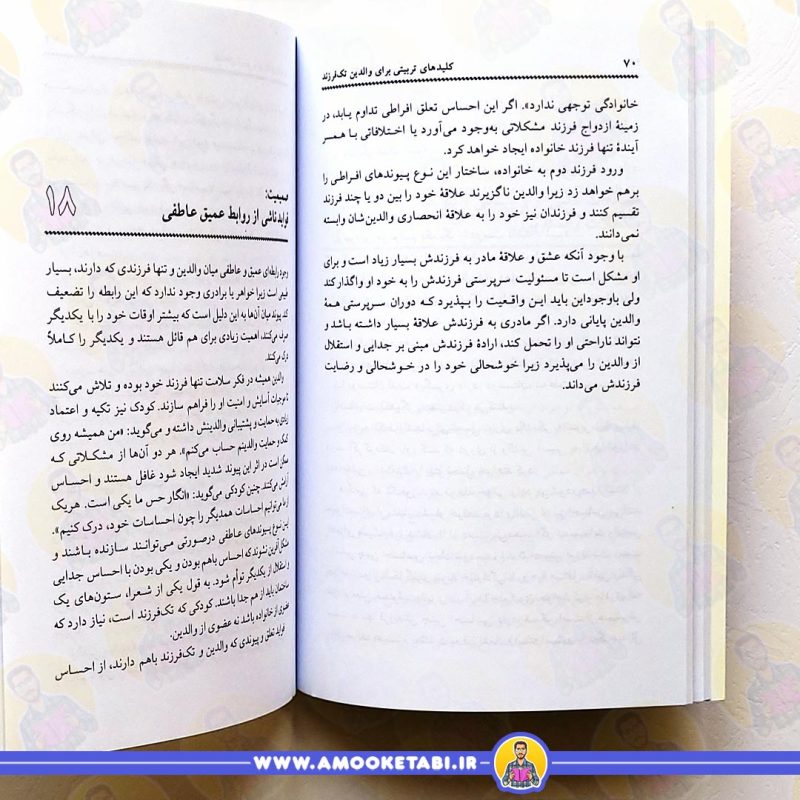 ۷۰ کلیدهای تربیتی برای والدین تک‌فرزند
خانوادگی توجهی ندارد». اگر این احساس تعلق افراطی تداوم یابد، در
زمینهٔ ازدواج فرزند مشکلاتی به‌وجود می‌آورد یا اختلافاتی با همسر
آیندهٔ تنها فرزند خانواده ایجاد خواهد کرد.
ورود فرزند دوم به خانواده، ساختار این نوع پیوندهای افراطی را
برهم خواهد زد زیرا والدین ناگزیرند علاقهٔ خود را بین دو یا چند فرزند
تقسیم کنند و فرزندان نیز خود را به علاقهٔ انحصاری والدین‌شان وابسته
نمی‌دانند.
با وجود آنکه عشق و علاقهٔ مادر به فرزندش بسیار زیاد است و برای
او مشکل است تا مسئولیت سرپرستی فرزندش را به خود او واگذار کند
ولی باوجوداین باید این واقعیت را بپذیرد که دوران سرپرستی همهٔ
والدین پایانی دارد. اگر مادری به فرزندش علاقهٔ بسیار داشته باشد و
نتواند ناراحتی او را تحمل کند، ارادهٔ فرزندش مبنی بر جدایی و استقلال
از والدین را می‌پذیرد زیرا خوشحالی خود را در خوشحالی و رضایت
فرزندش می‌داند.
۱۸
صمیمیت:
فواید ناشی از روابط عمیق عاطفی
وجود رابطه‌ای عمیق و عاطفی میان والدین و تنها فرزندی که دارند، بسیار
طبیعی است زیرا خواهر یا برادری وجود ندارد که این رابطه را تضعیف
کند. پیوند میان آن‌ها به این دلیل است که بیشتر اوقات خود را با یکدیگر
صرف می‌کنند، اهمیت زیادی برای هم قائل هستند و یکدیگر را کاملاً
درک می‌کنند.
والدین همیشه در فکر سلامت تنها فرزند خود بوده و تلاش می‌کنند
تا موجبات آسایش و امنیت او را فراهم سازند. کودک نیز تکیه و اعتماد
زیادی به حمایت و پشتیبانی والدینش داشته و می‌گوید: «من همیشه روی
کمک و حمایت والدینم حساب می‌کنم». هر دو آن‌ها از مشکلاتی که
ممکن است در اثر این پیوند شدید ایجاد شود غافل هستند و احساس
آرامش می‌کنند. چنین کودکی می‌گوید: «انگار حس ما یکی است. هریک
از ما می‌توانیم احساسات همدیگر را چون احساسات خود، درک کنیم».
این نوع پیوندهای عاطفی درصورتی می‌توانند سازنده باشند و
مشکل‌آفرین نشوند که احساس باهم بودن و یکی بودن با احساس جدایی
و استقلال از یکدیگر توأم شود. به قول یکی از شعراء، ستون‌های یک
ساختمان باید از هم جدا باشند. کودکی که تک‌فرزند است، نیاز دارد که
عضوی از خانواده باشد نه عضوی از والدین.
فواید تعلق و پیوندی که والدین و تک‌فرزند باهم دارند، از احساس
WWW.AMOOKETABI.IR